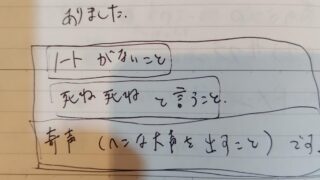 ありました.
ノート がないこと
死ね 死ね と言うこと.
奇声 (ヘンな大声を出すこと) です.